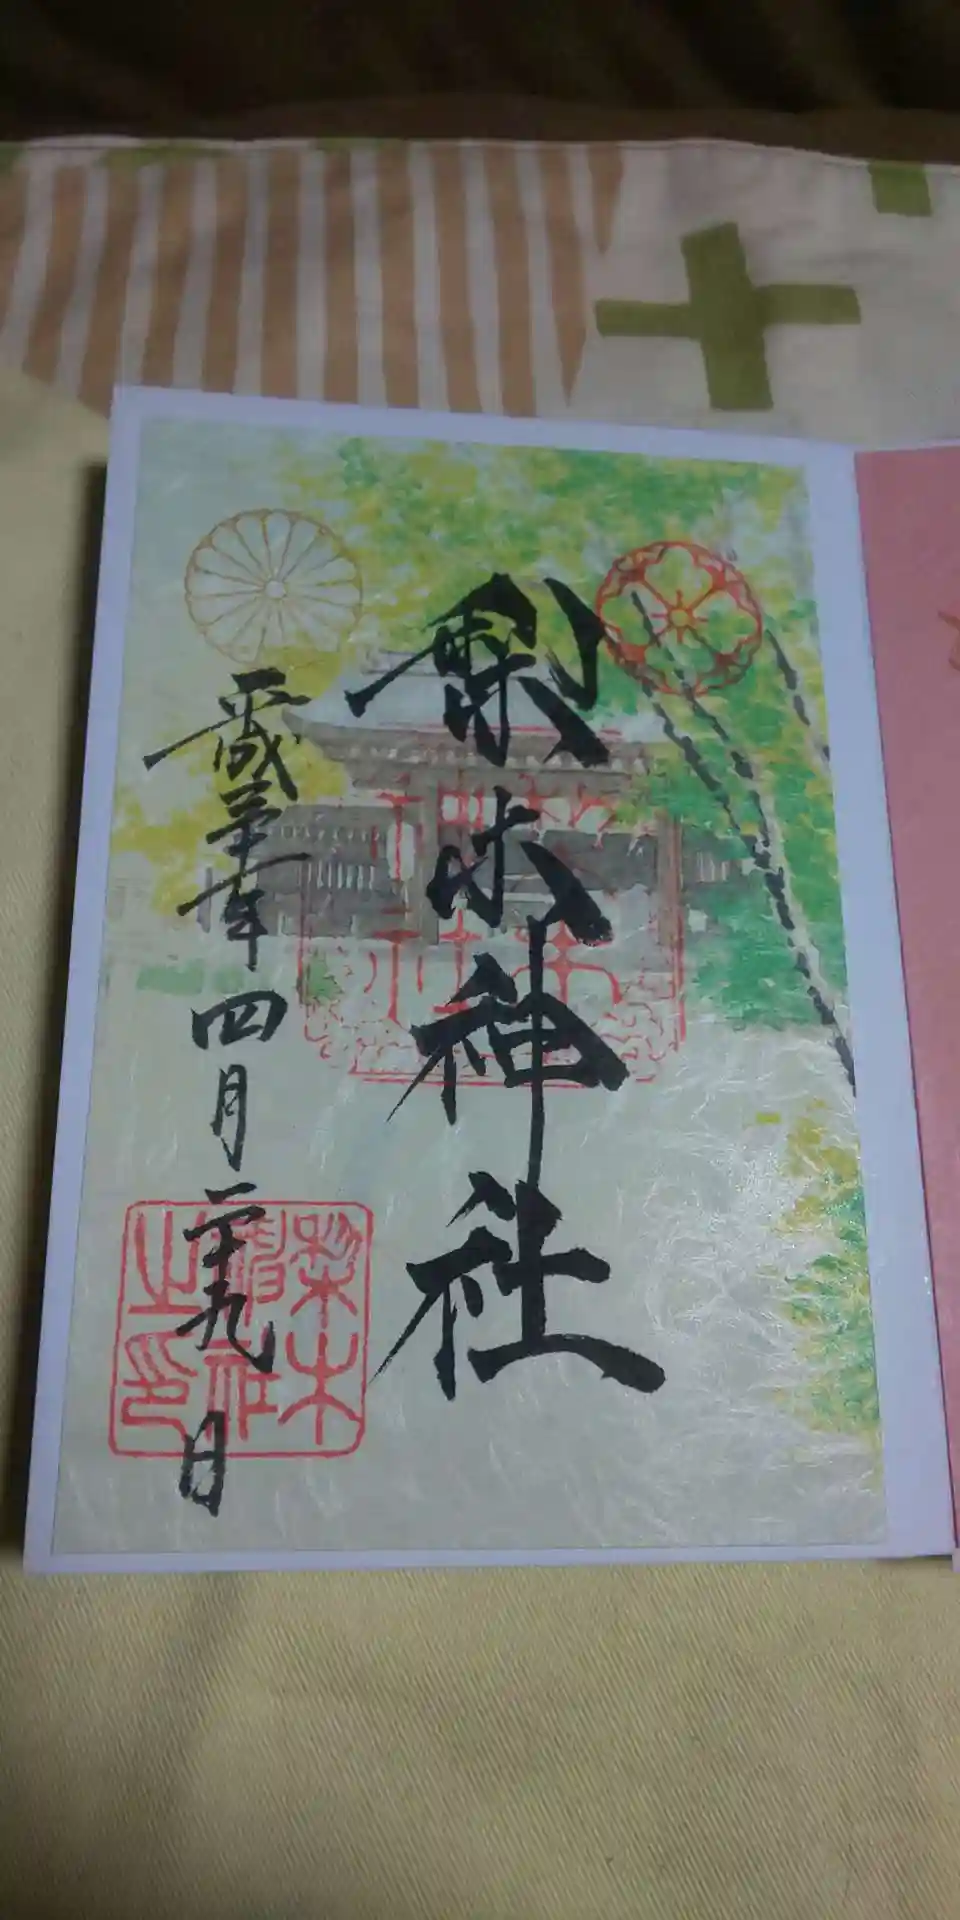 梨木神社
平成三十一年四月二十九日
梨木
神社
之印